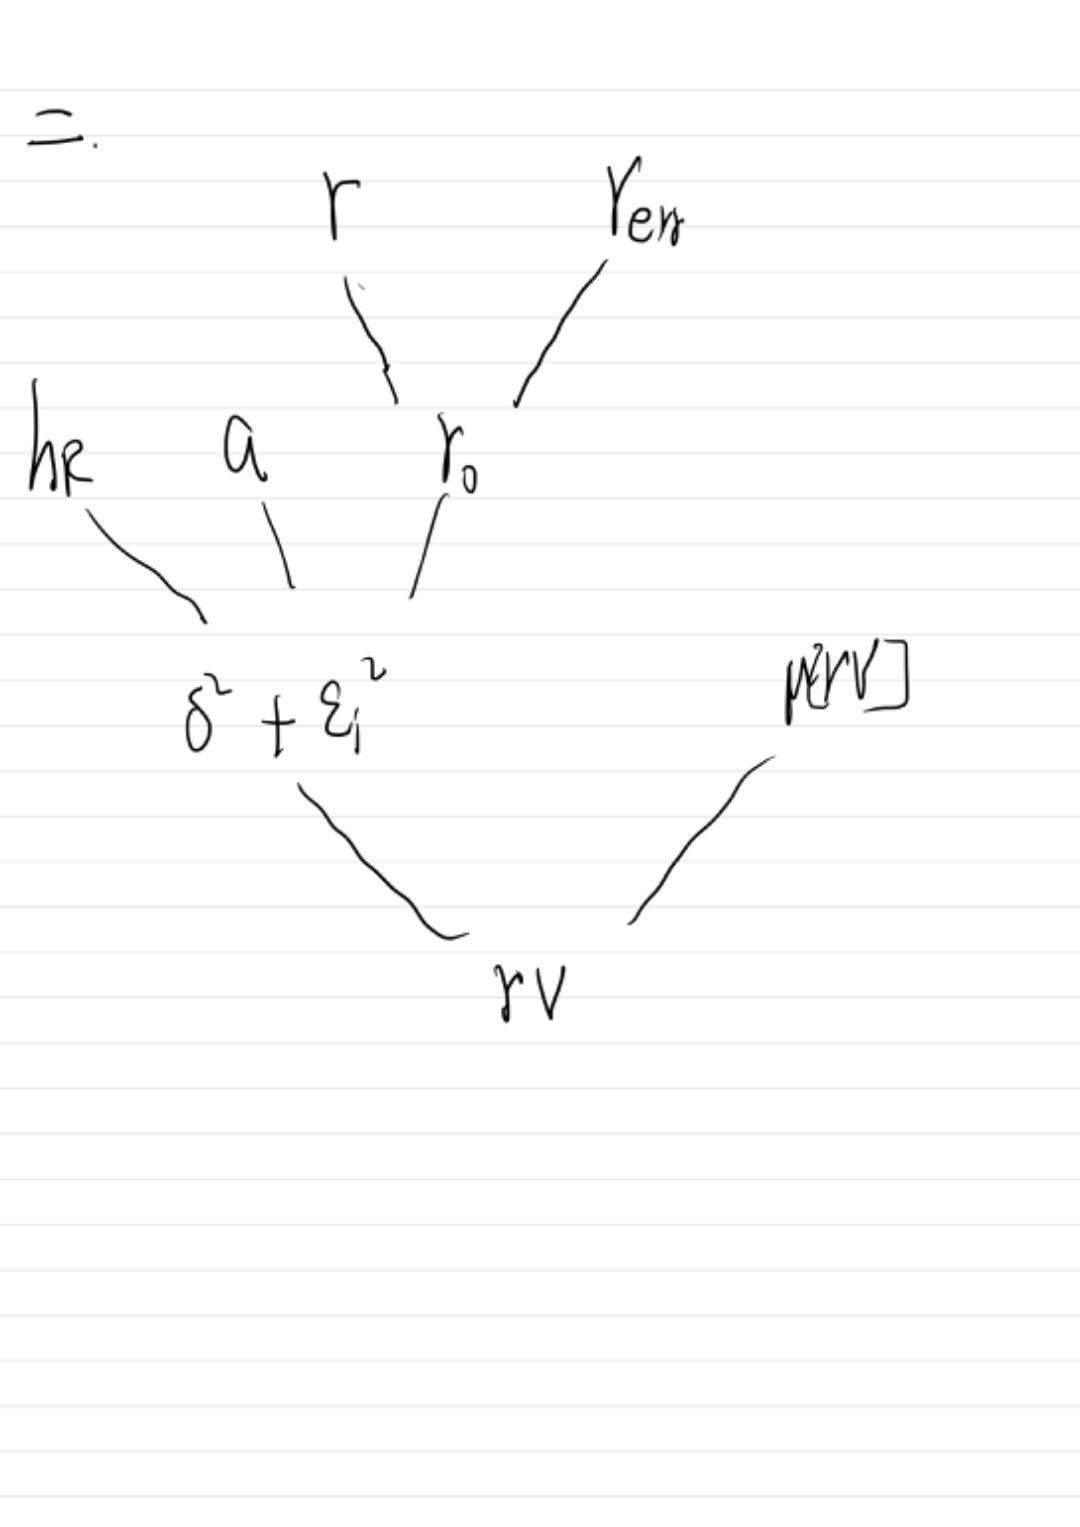 二.
r r_err
h_R a r_0
δ² + ε₁² μ[rV]
rV